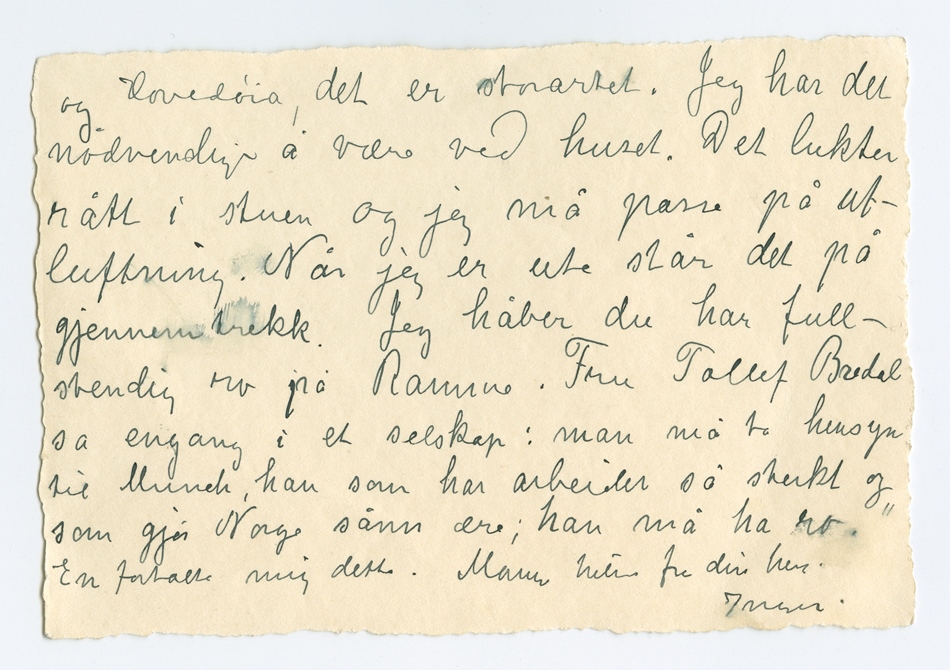 og Hovedöia, det er storartet. Jeg har det
nödvendig å være ved huset. Det lukter
rått i stuen og jeg må passe på ut-
luftning. Når jeg er ute står det på
gjennemtrekk. Jeg håber du har full-
stendig ro på Ramme. Fru Tollef Bredal
sa engang i et selskap: man må ta hensyn
til Munch, han som har arbeidet så sterkt og
som gjör Norge sånn ære; han må ha ro."
En fortalte mig dette. Mange hilsner fra din hen.
Inger.